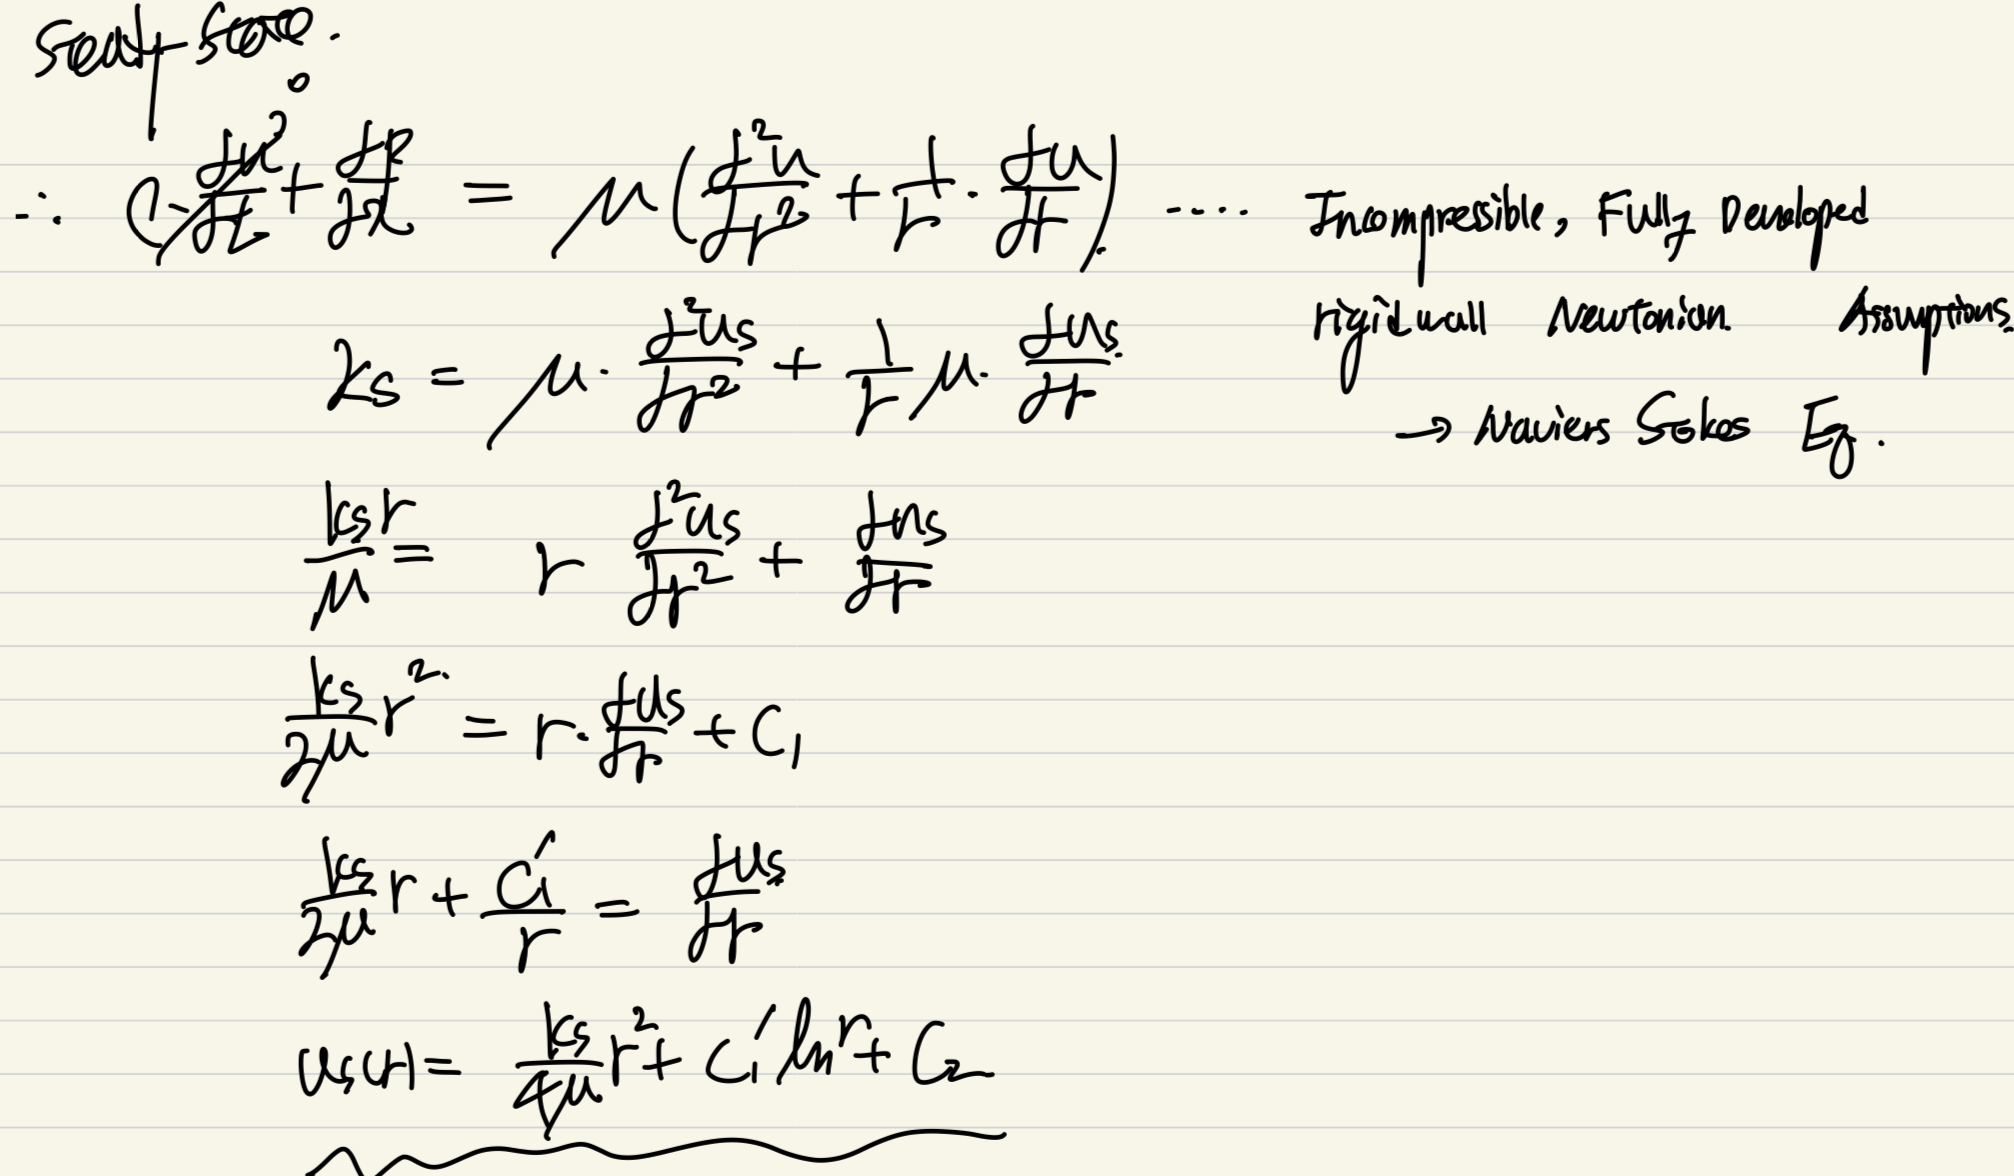 Seaty state.
∴ ρ·du/dt + dp/dx = μ(d²u/dr² + 1/r · du/dr) .... Incompressible, Fully Developed
0
rigid wall Newtonian. Assumptions.
ks = μ· d²us/dr² + 1/r μ· dus/dr
→ Naviers Stokes Eq.
ksr/μ = r d²us/dr² + dus/dr
ks/2μ r² = r· dus/dr + C₁
ks/2μ r + C₁′/r = dus/dr
us(r) = ks/4μ r² + C₁′ ln r + C₂